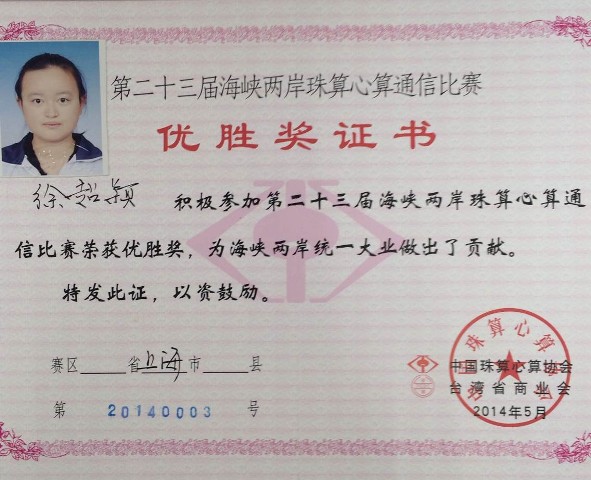 第二十三届海峡两岸珠算心算通信比赛
优胜奖证书
徐超颖 积极参加第二十三届海峡两岸珠算心算通
信比赛荣获优胜奖，为海峡两岸统一大业做出了贡献。
特发此证，以资鼓励。
赛区 省 上海 市 县
中国珠算心算协会
台湾省商业会
第 20140003 号
2014年5月